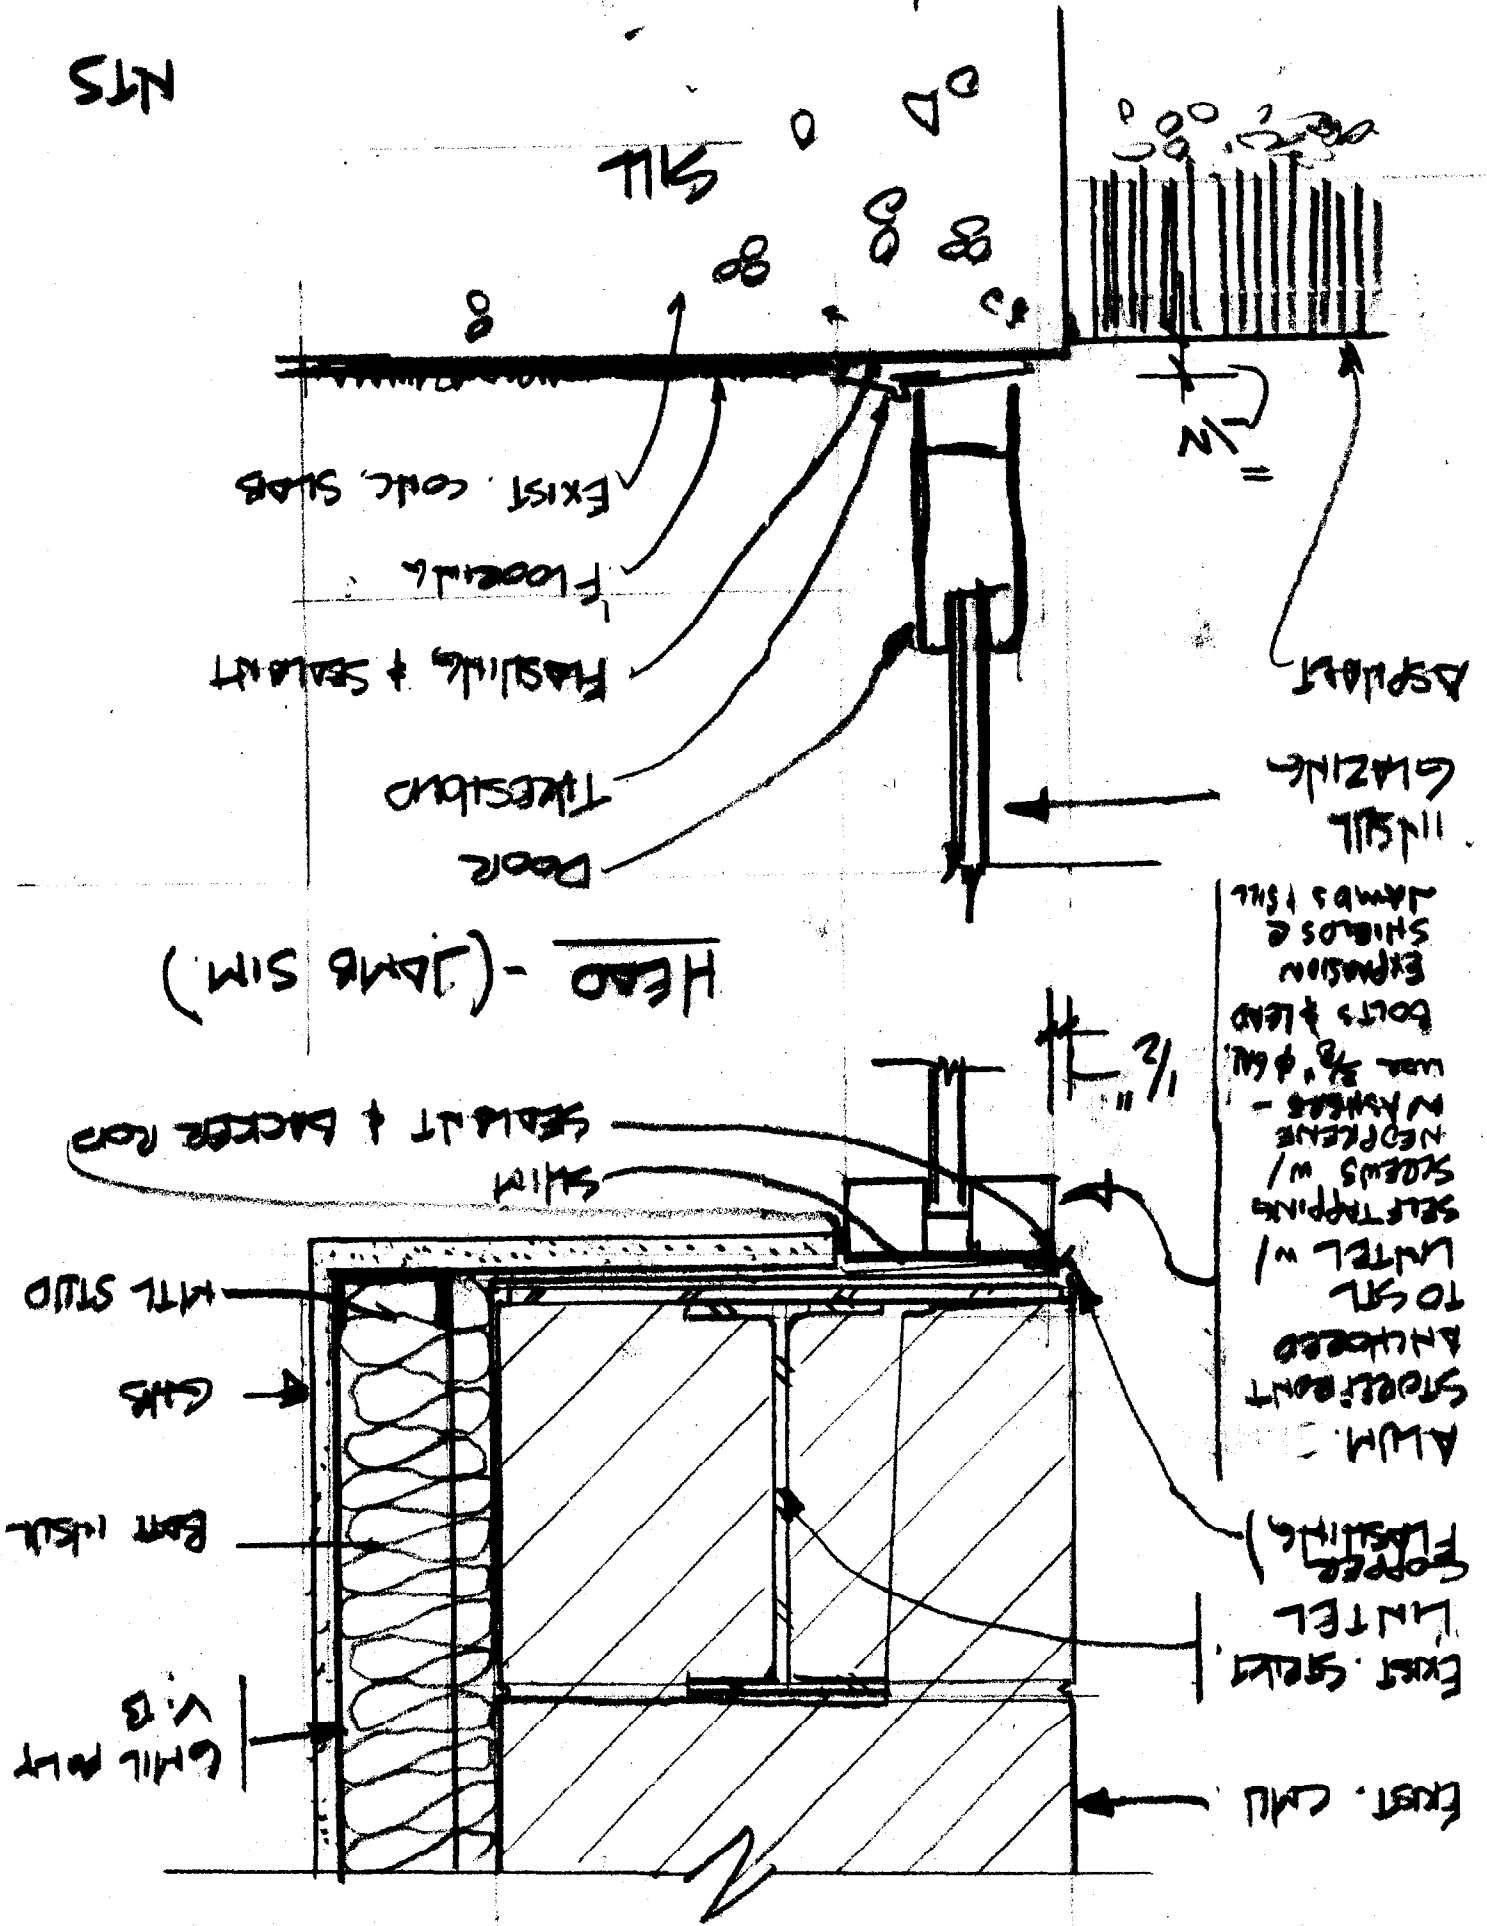 EXIST. CMU
EXIST. STRUCT.
LINTEL
COPPER
FLASHING
ALUM.
STOREFRONT
ANCHORED
TO STL
LINTEL W/
SELFTAPPING
SCREWS W/
NEOPRENE
WASHERS -
USE 3/8" φ GAL
BOLTS & LEAD
EXPANSION
SHIELDS @
JAMBS & SILL
INSUL
GLAZING
ASPHALT
6 MIL POLY
V.B
BATT INSUL
GWB
MTL STUD
SHIM
SEALANT & BACKER ROD
1/2"
HEAD - (JAMB SIM.)
DOOR
THRESHOLD
FLASHING & SEALANT
FLOORING
EXIST. CONC. SLAB
SILL
NTS